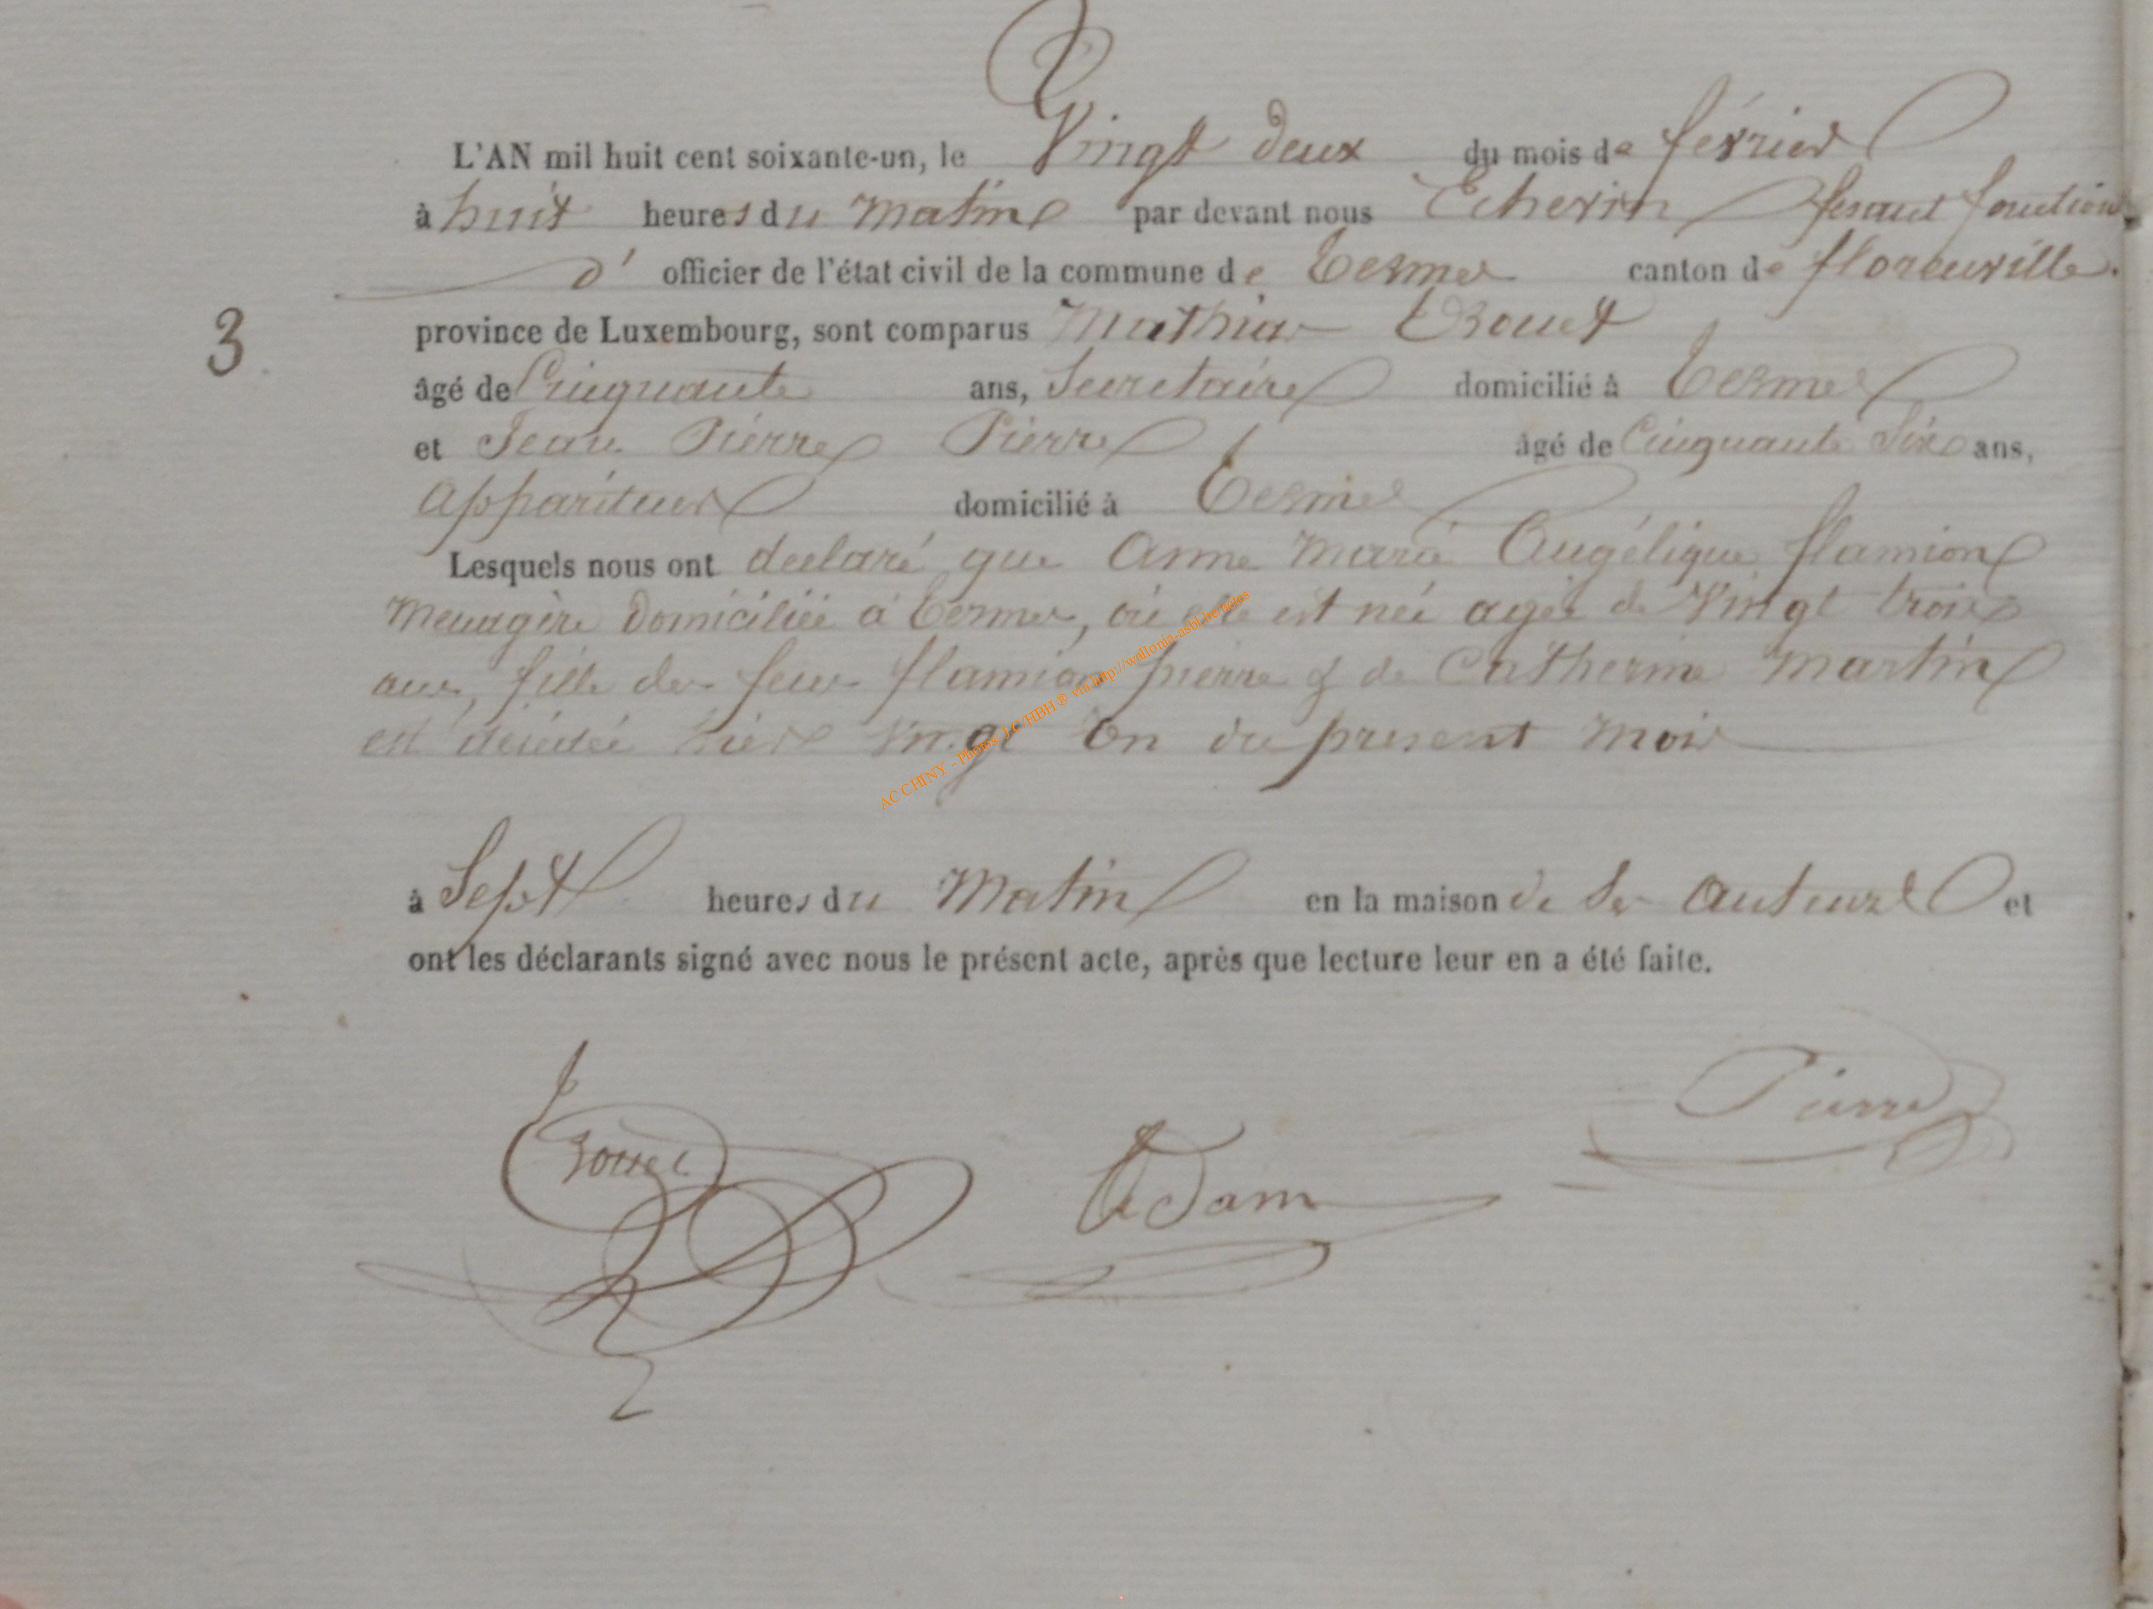 L'AN mil huit cent soixante-un, le Vingt deux du mois de février
à huit heures du matin par devant nous Echevin fesant fonction
d' officier de l'état civil de la commune de Termes canton de florenville.
3
province de Luxembourg, sont comparus Mathias Brouet
âgé de Cinquante ans, Secretaire domicilié à Termes
et Jean Pierre Pierre âgé de Cinquante Six ans,
Appariteur domicilié à Termes
Lesquels nous ont declaré que Anne Marie Angélique flamion
Menagère domiciliée à Termes, où elle est née agée de Vingt trois
ans, fille des feus flamion pierre & de Catherine Martin
est décédée hier Vingt un du present mois
AC CHINY - Photos J-C HBH ® via http://wallonia-asbl.be/
à Sept heures du Matin en la maison de Ses auteurs et
ont les déclarants signé avec nous le présent acte, après que lecture leur en a été faite.
Pierre
Brouet
Adam